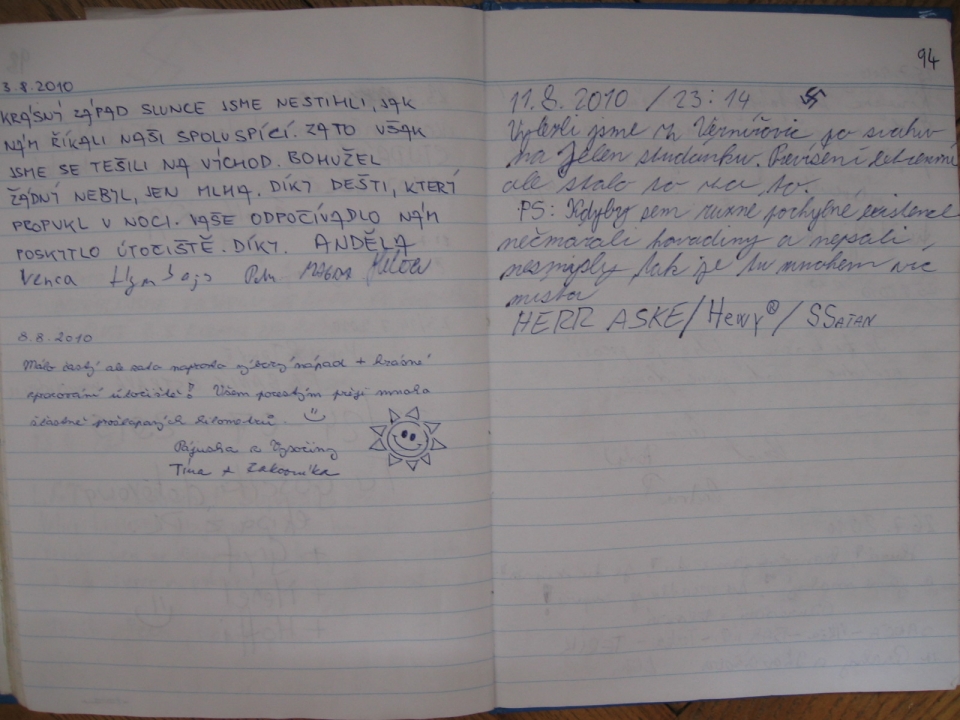 3.8.2010
KRÁSNÝ ZÁPAD SLUNCE JSME NESTIHLI, JAK
NÁM ŘÍKALI NAŠI SPOLUSPÍCÍ. ZATO VŠAK
JSME SE TEŠILI NA VÝCHOD. BOHUŽEL
ŽÁDNÝ NEBYL, JEN MLHA. DÍKY DEŠTI, KTERÝ
PROPUKL V NOCI. VAŠE ODPOČÍVADLO NÁM
POSKYTLO ÚTOČIŠTĚ. DÍKY. ANDĚLA
Venca
8.8.2010
Málo častý ale zato naprosto výborný nápad + krásné
zpracování útočiště! Všem poctivým přeji mnoho
šťastně prošlapaných kilometrů.
Pájuška z Vysočiny
Tina
94
11.8.2010 / 23:14
Vylezli jsme z Vernířovic po svahu
na Jelen studánku. Převýšení
ale stálo to za to.
PS: Kdyby sem různé pochybné existence
nečmárali kovadiny a nepsali
nesmysly, tak je tu mnohem víc
místa
HERR ASKE/Henry®/SSATAN